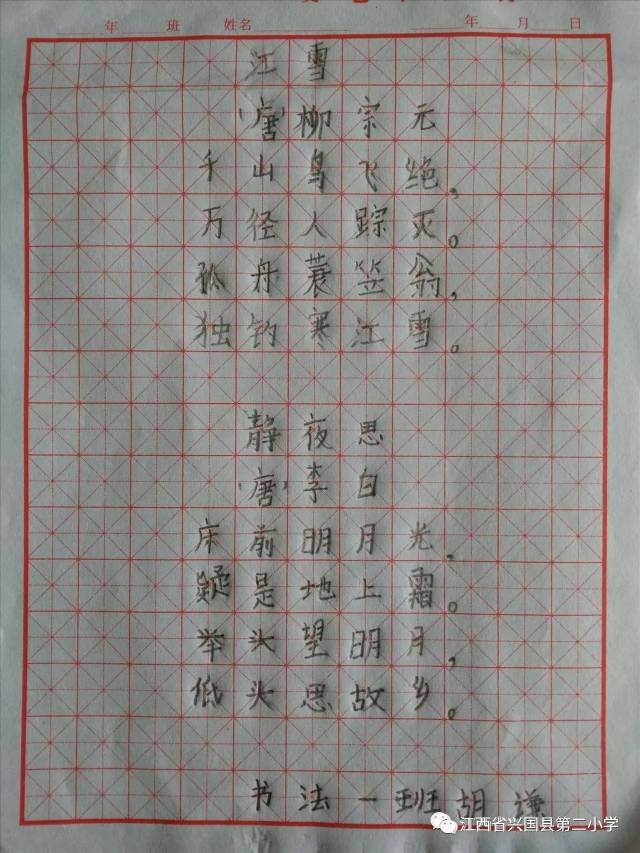 年 班 姓名 年 月 日
江雪
(唐)柳宗元
千山鸟飞绝，
万径人踪灭。
孤舟蓑笠翁，
独钓寒江雪。
静夜思
(唐)李白
床前明月光，
疑是地上霜。
举头望明月，
低头思故乡。
书法一班胡谦
江西省兴国县第二小学